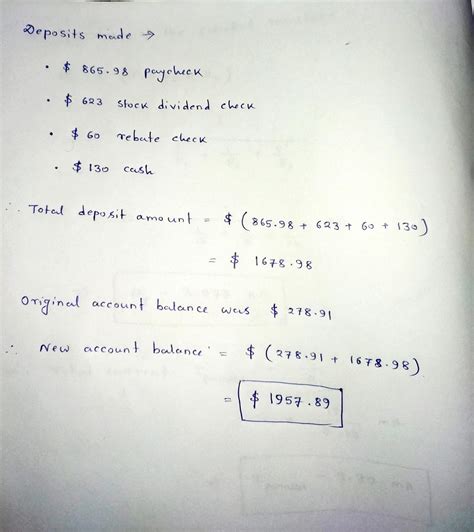 Deposits made →
• $ 865.98 paycheck
• $ 623 stock dividend check
• $ 60 rebate check
• $ 130 cash
∴ Total deposit amount = $ (865.98 + 623 + 60 + 130)
= $ 1678.98
Original account balance was $ 278.91
∴ New account balance = $ (278.91 + 1678.98)
= $ 1957.89